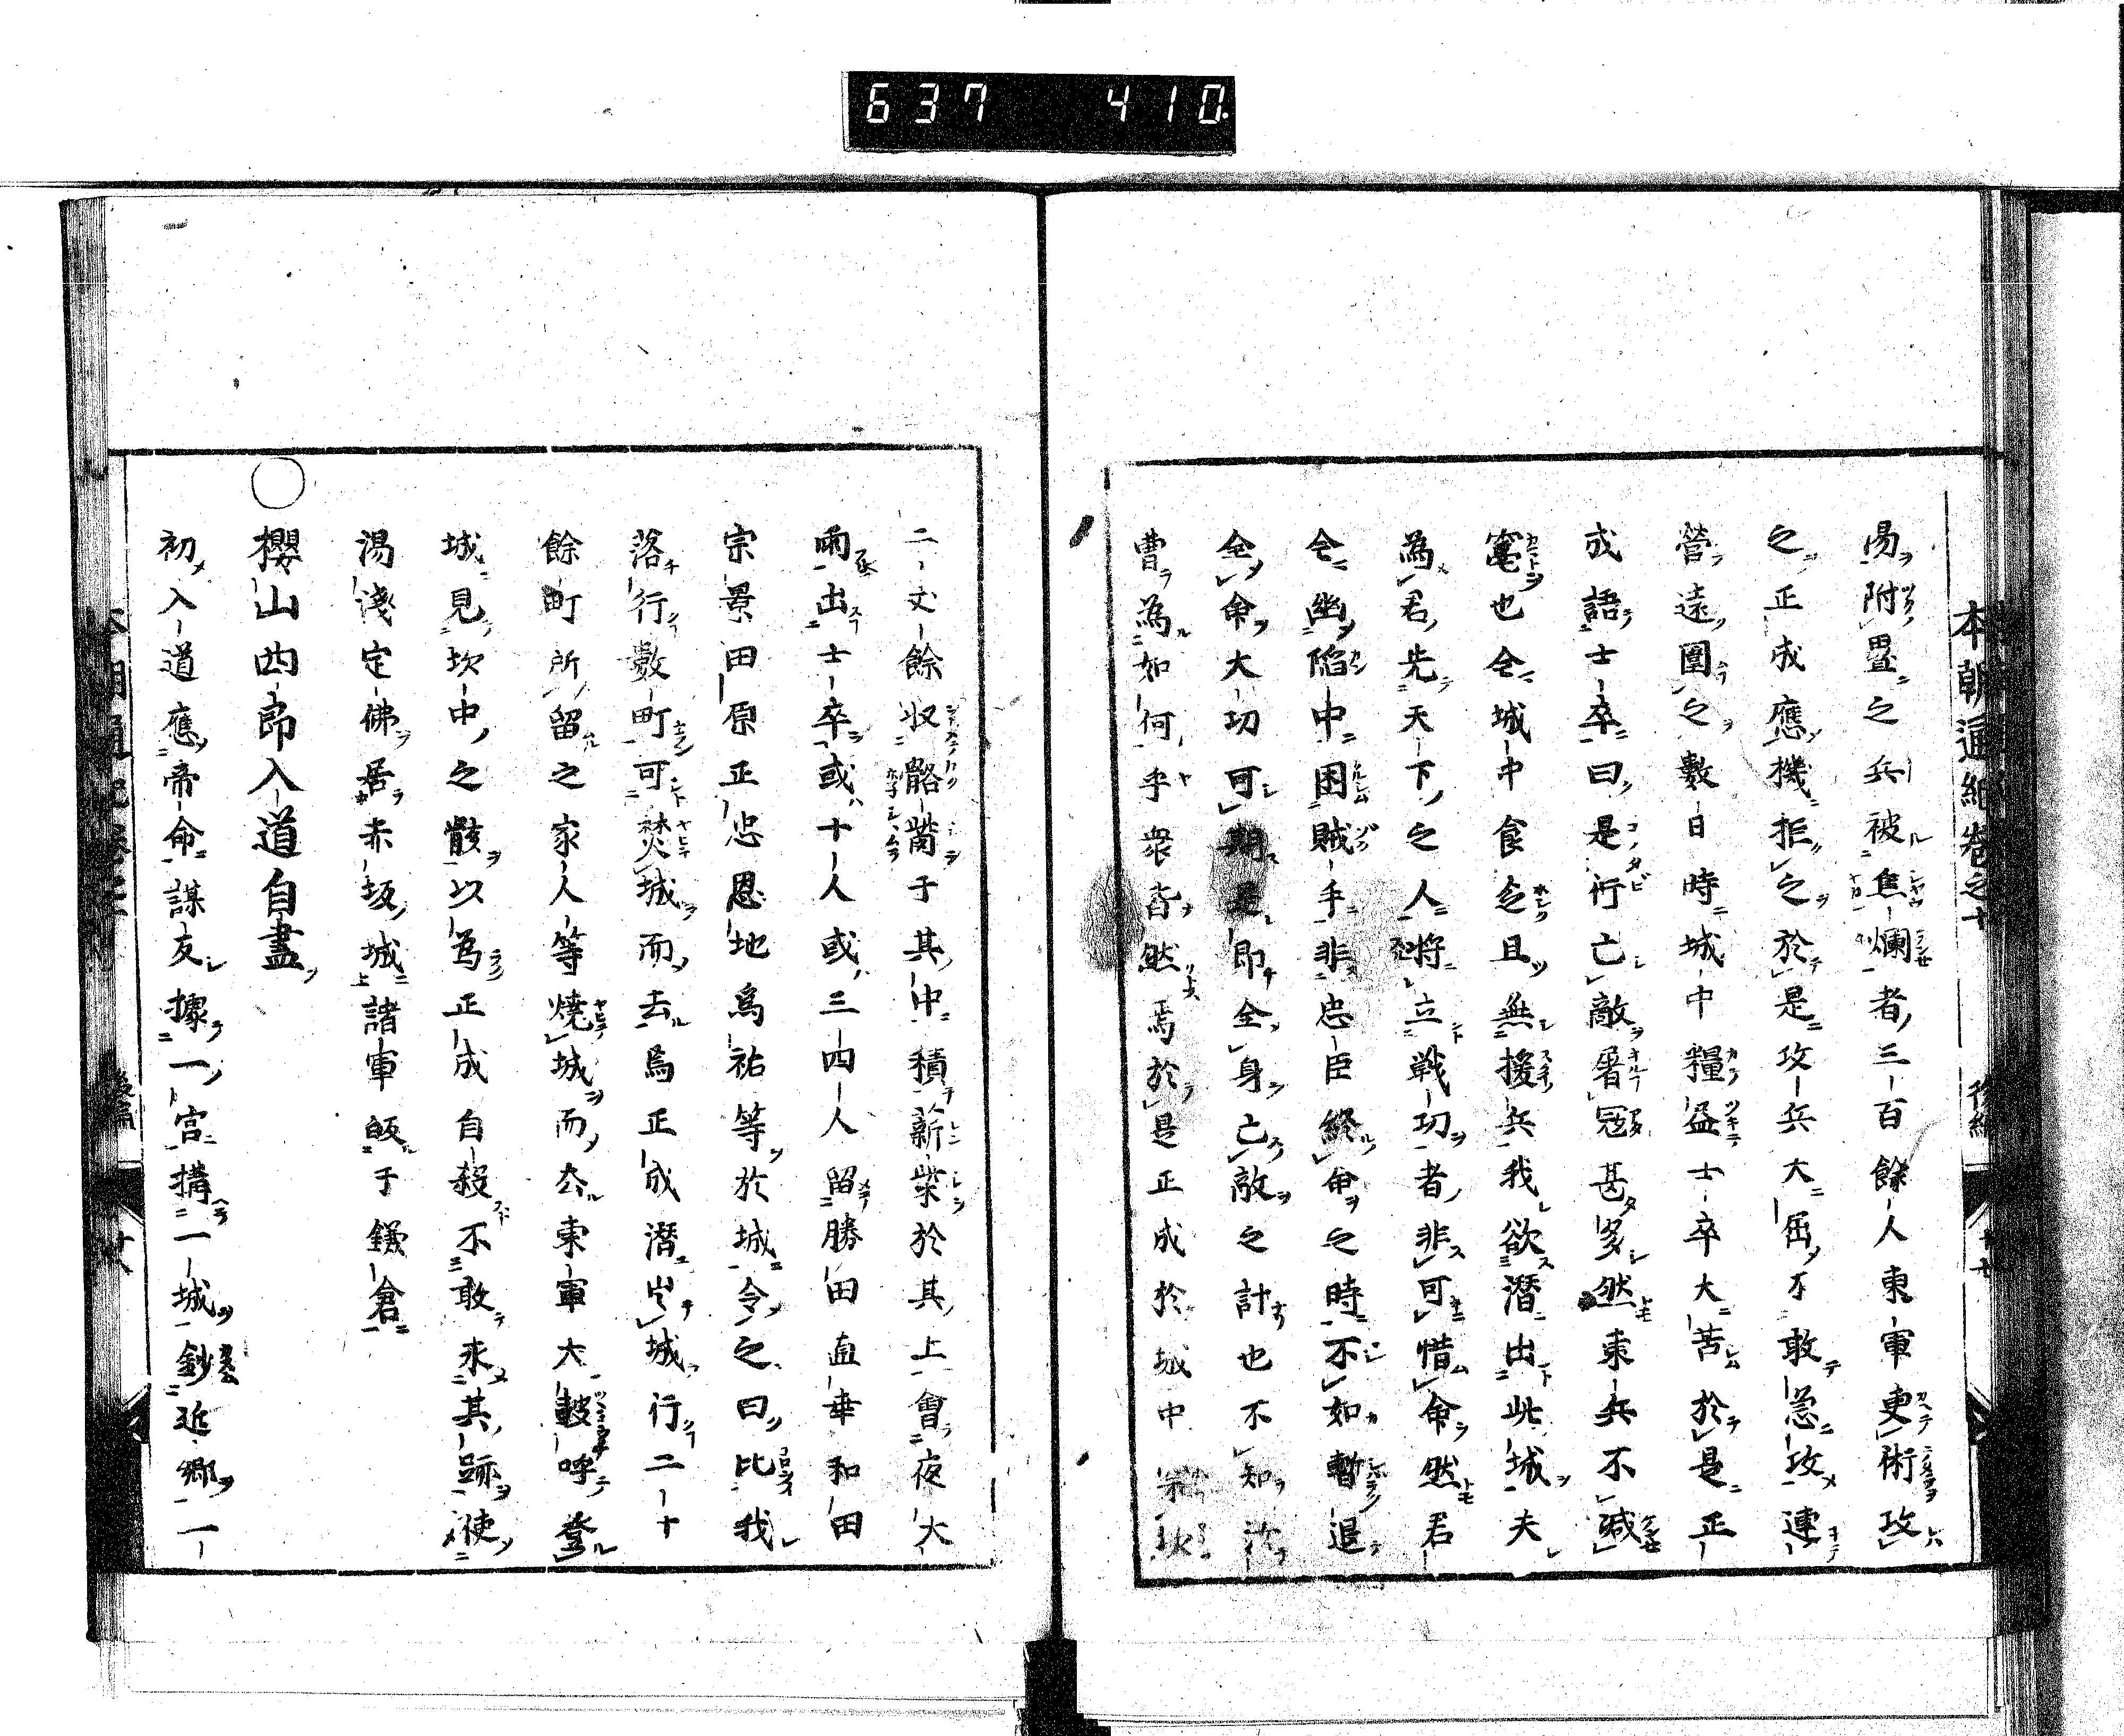 637 410
本朝通紀卷之十 後編
湯附壘之兵被焦爛者三百餘人東軍更術攻
之正成應機拒之於是攻兵大屈不敢急攻連
營遠圍之數日時城中糧益士卒大苦於是正
成語士卒曰是行亡敵署冦甚多然東兵不減
竃也今城中食乏且無援兵我欲潛出此城夫
為君先天下之人將立戦功者非可惜命然君
今幽陥中困賊手非忠臣終命之時不如暫退
全命大功可期是即全身亡敵之計也不知
曹為如何乎衆皆然焉於是正成於城中
二丈餘収骼胔于其中積薪柴於其上會夜大
雨出士卒或十人或三四人留勝田直幸和田
宗景田原正忠恩地爲祐等於城令之曰比我
落行數町可焚城而去焉正成潛出城行二十
餘町所留之家人等燒城而去東軍大皷呼登
城見坎中之骸以為正成自殺不敢求其跡使
湯淺定佛居赤坂城諸軍皈于鎌倉
○櫻山四郎入道自盡
初入道應帝命謀友據一宮搆一城鈔近郷一